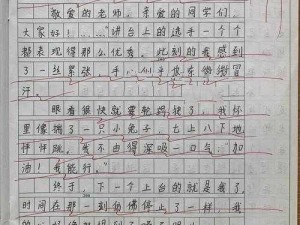 敬爱的老师，亲爱的同学们，
大家好！……"讲台上的选手一个个
都表现得那么优秀。此刻的我感到
了一丝紧张，手心似乎在微微冒
汗。
眼看很快就要轮到我了，我怀
里像揣了一只小兔子，七上八下地
怦怦跳。我不由得深吸一口气："加
油！我能行。"
终于，下一个上台的就是我了，
时间在那一刻仿佛停止了一样，我